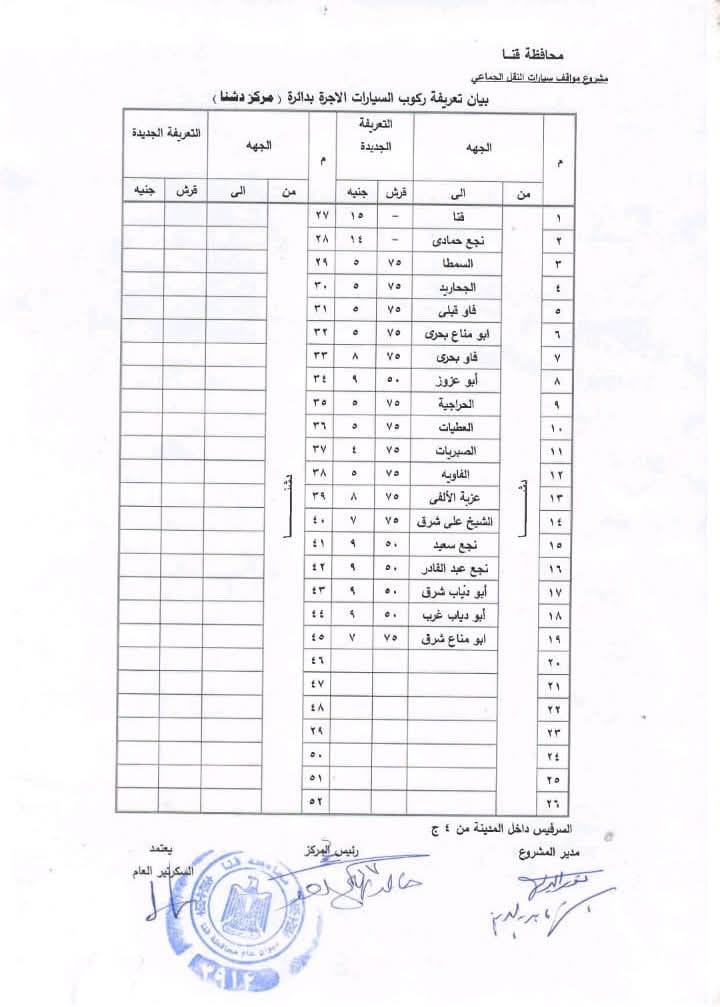 محافظة قنـــا
مشروع مواقف سيارات النقل الجماعي
بيان تعريفة ركوب السيارات الاجرة بدائرة ( مركز دشنا )
م الجهه التعريفة الجديدة م الجهه التعريفة الجديدة
من الى قرش جنيه من الى قرش جنيه
١ قنا – ١٥ ٢٧
٢ نجع حمادى – ١٤ ٢٨
٣ السمطا ٧٥ ٥ ٢٩
٤ الجحاريد ٧٥ ٥ ٣٠
٥ فاو قبلى ٧٥ ٥ ٣١
٦ ابو مناع بحرى ٧٥ ٥ ٣٢
٧ فاو بحرى ٧٥ ٨ ٣٣
٨ أبو عزوز ٥٠ ٩ ٣٤
٩ الحراجية ٧٥ ٥ ٣٥
١٠ العطيات ٧٥ ٥ ٣٦
١١ الصبريات ٧٥ ٤ ٣٧
١٢ الفاويه ٧٥ ٥ ٣٨
١٣ دشنــــــا عزبة الألفى ٧٥ ٨ ٣٩ دشنــــــا
١٤ الشيخ على شرق ٧٥ ٧ ٤٠
١٥ نجع سعيد ٥٠ ٩ ٤١
١٦ نجع عبد القادر ٥٠ ٩ ٤٢
١٧ أبو دياب شرق ٥٠ ٩ ٤٣
١٨ أبو دياب غرب ٥٠ ٩ ٤٤
١٩ ابو مناع شرق ٧٥ ٧ ٤٥
٢٠ ٤٦
٢١ ٤٧
٢٢ ٤٨
٢٣ ٢٩
٢٤ ٥٠
٢٥ ٥١
٢٦ ٥٢
السرفيس داخل المدينة من ٤ ج
مدير المشروع رئيس المركز يعتمد
السكرتير العام
محافظة قنا
ديوان عام محافظة قنا
٣٩١٢